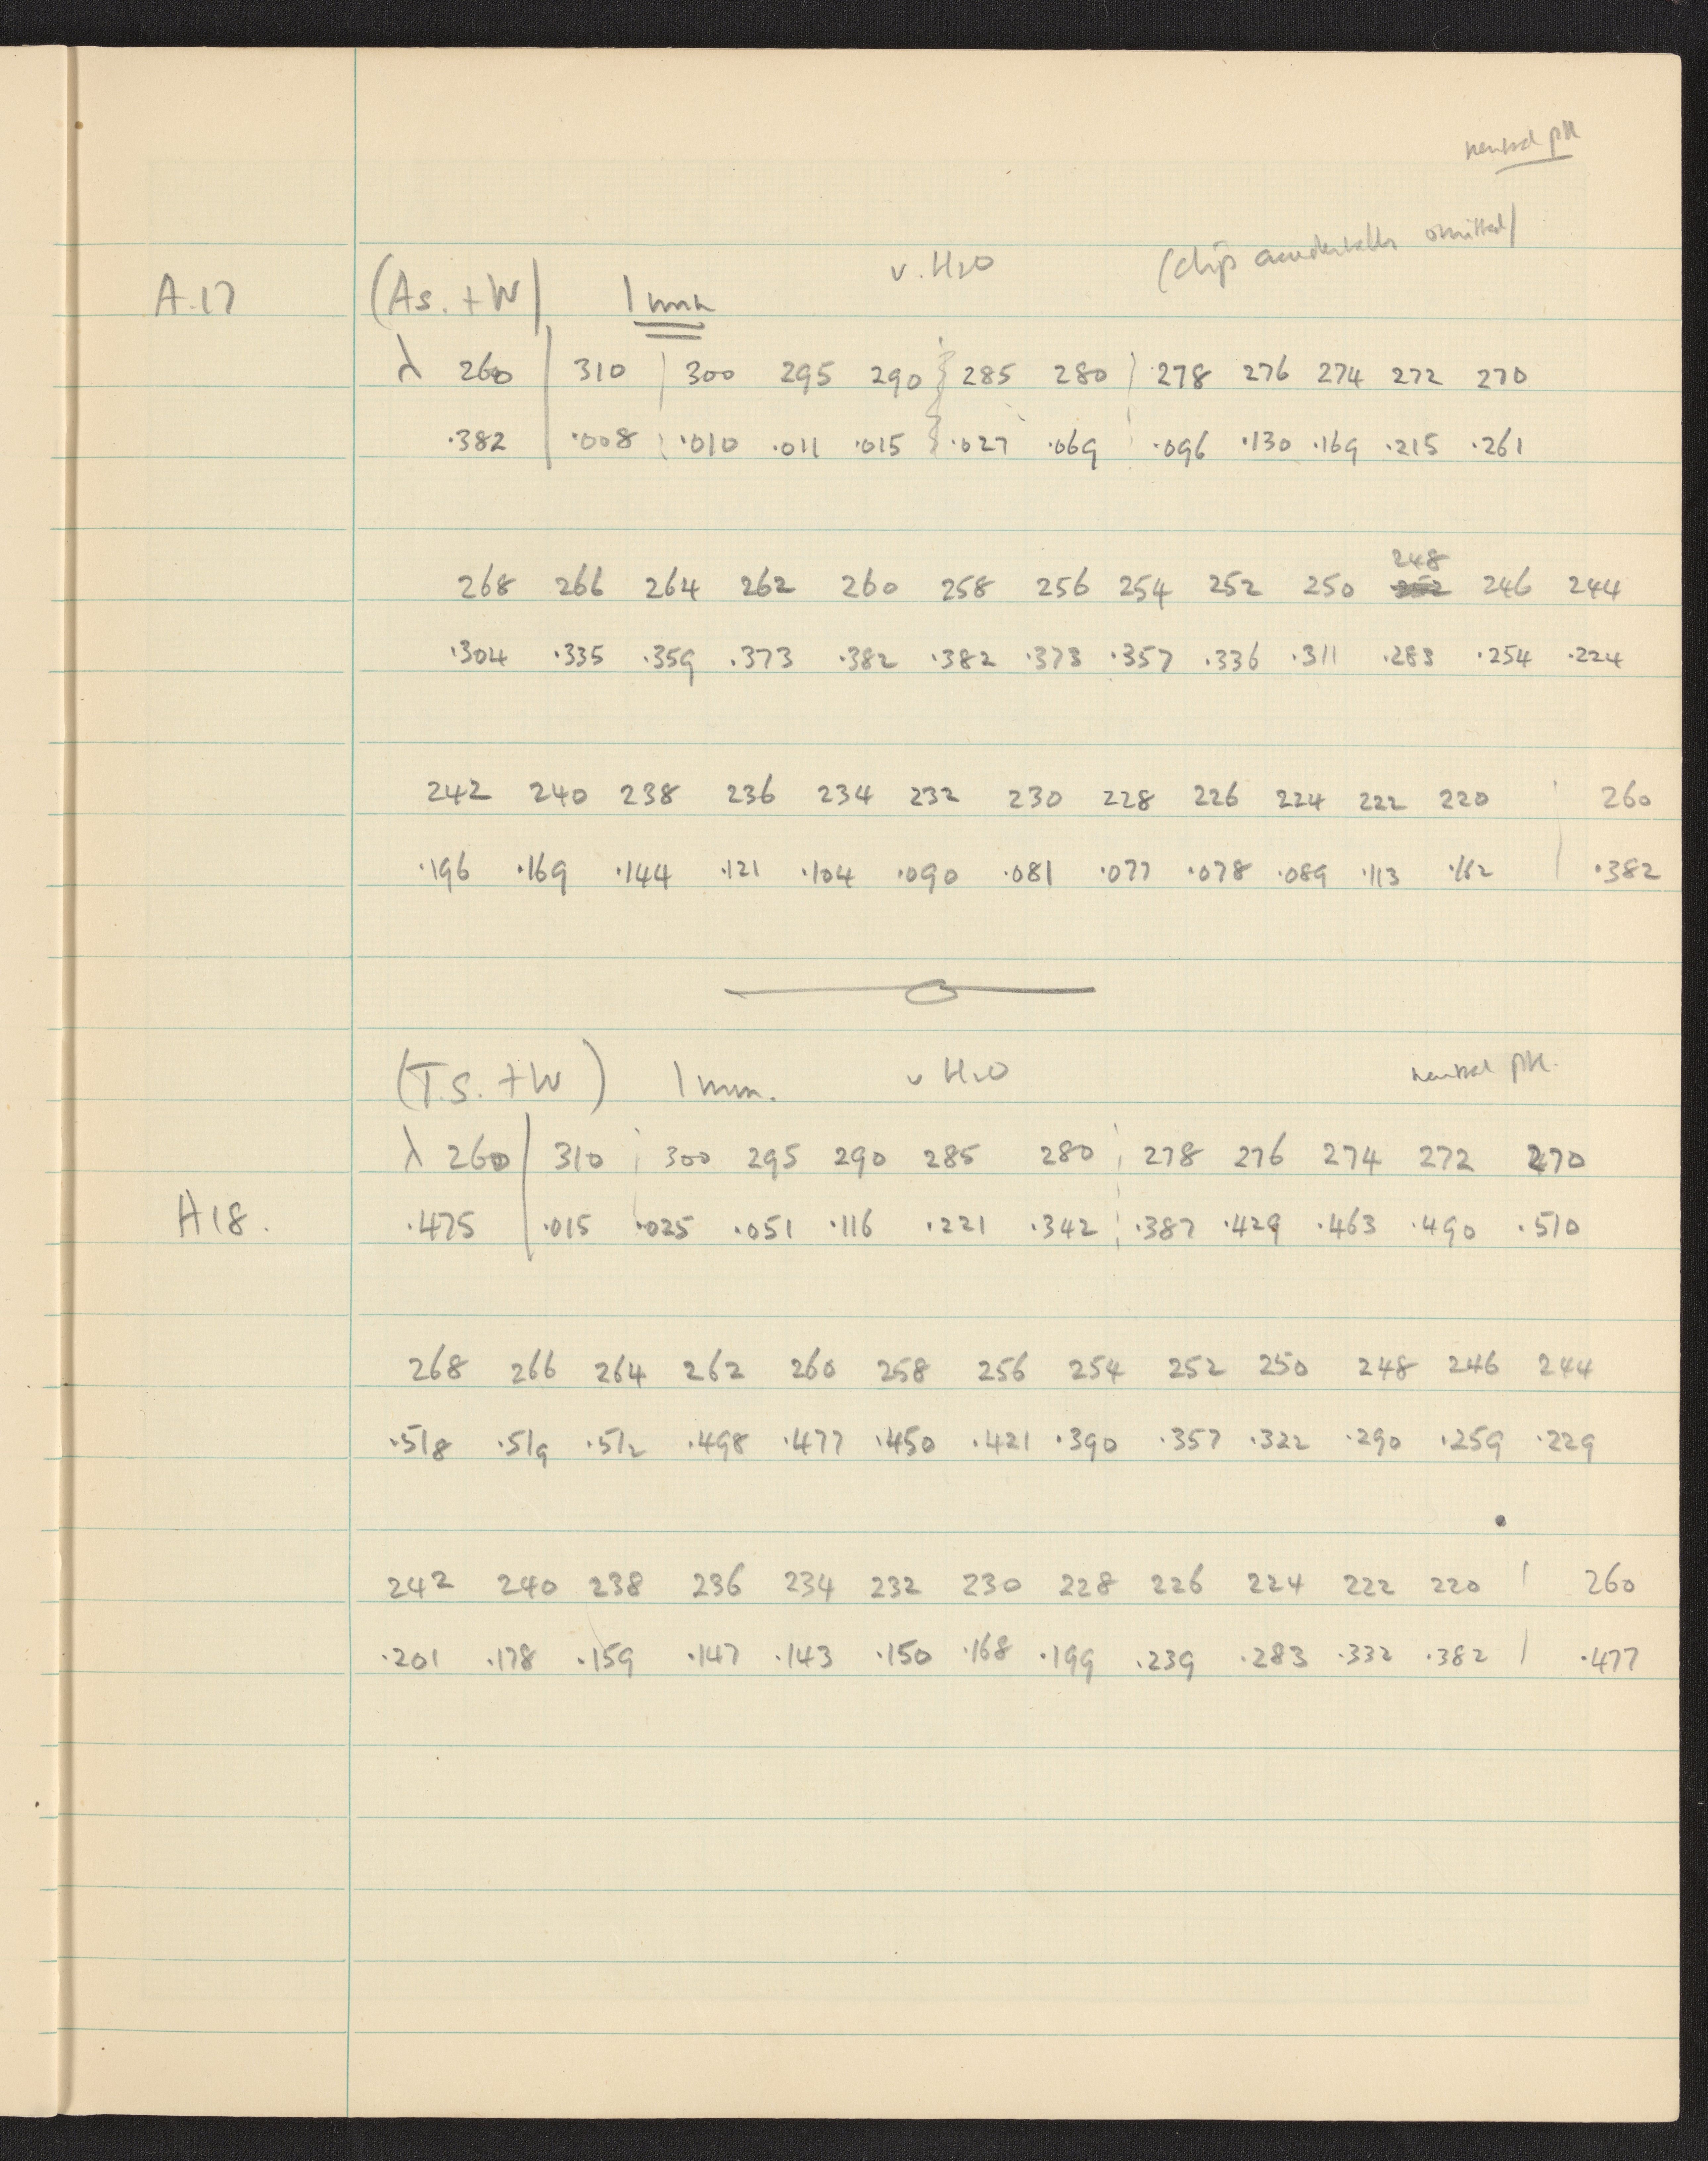 neutral pH
A.17 (As. + W) 1 mm v. H2O (clip accidentally omitted)
λ 260 310 300 295 290 285 280 278 276 274 272 270
.382 .008 .010 .011 .015 .027 .069 .096 .130 .169 .215 .261
248
268 266 264 262 260 258 256 254 252 250 252 246 244
.304 .335 .359 .373 .382 .382 .373 .357 .336 .311 .283 .254 .224
242 240 238 236 234 232 230 228 226 224 222 220 260
.196 .169 .144 .121 .104 .090 .081 .077 .078 .089 .113 .162 .382
(T.S. + W) 1 mm. v H2O neutral pH.
λ 260 310 300 295 290 285 280 278 276 274 272 270
A18. .475 .015 .025 .051 .116 .221 .342 .387 .429 .463 .490 .510
268 266 264 262 260 258 256 254 252 250 248 246 244
.518 .519 .512 .498 .477 .450 .421 .390 .357 .322 .290 .259 .229
242 240 238 236 234 232 230 228 226 224 222 220 260
.201 .178 .159 .147 .143 .150 .168 .199 .239 .283 .332 .382 .477